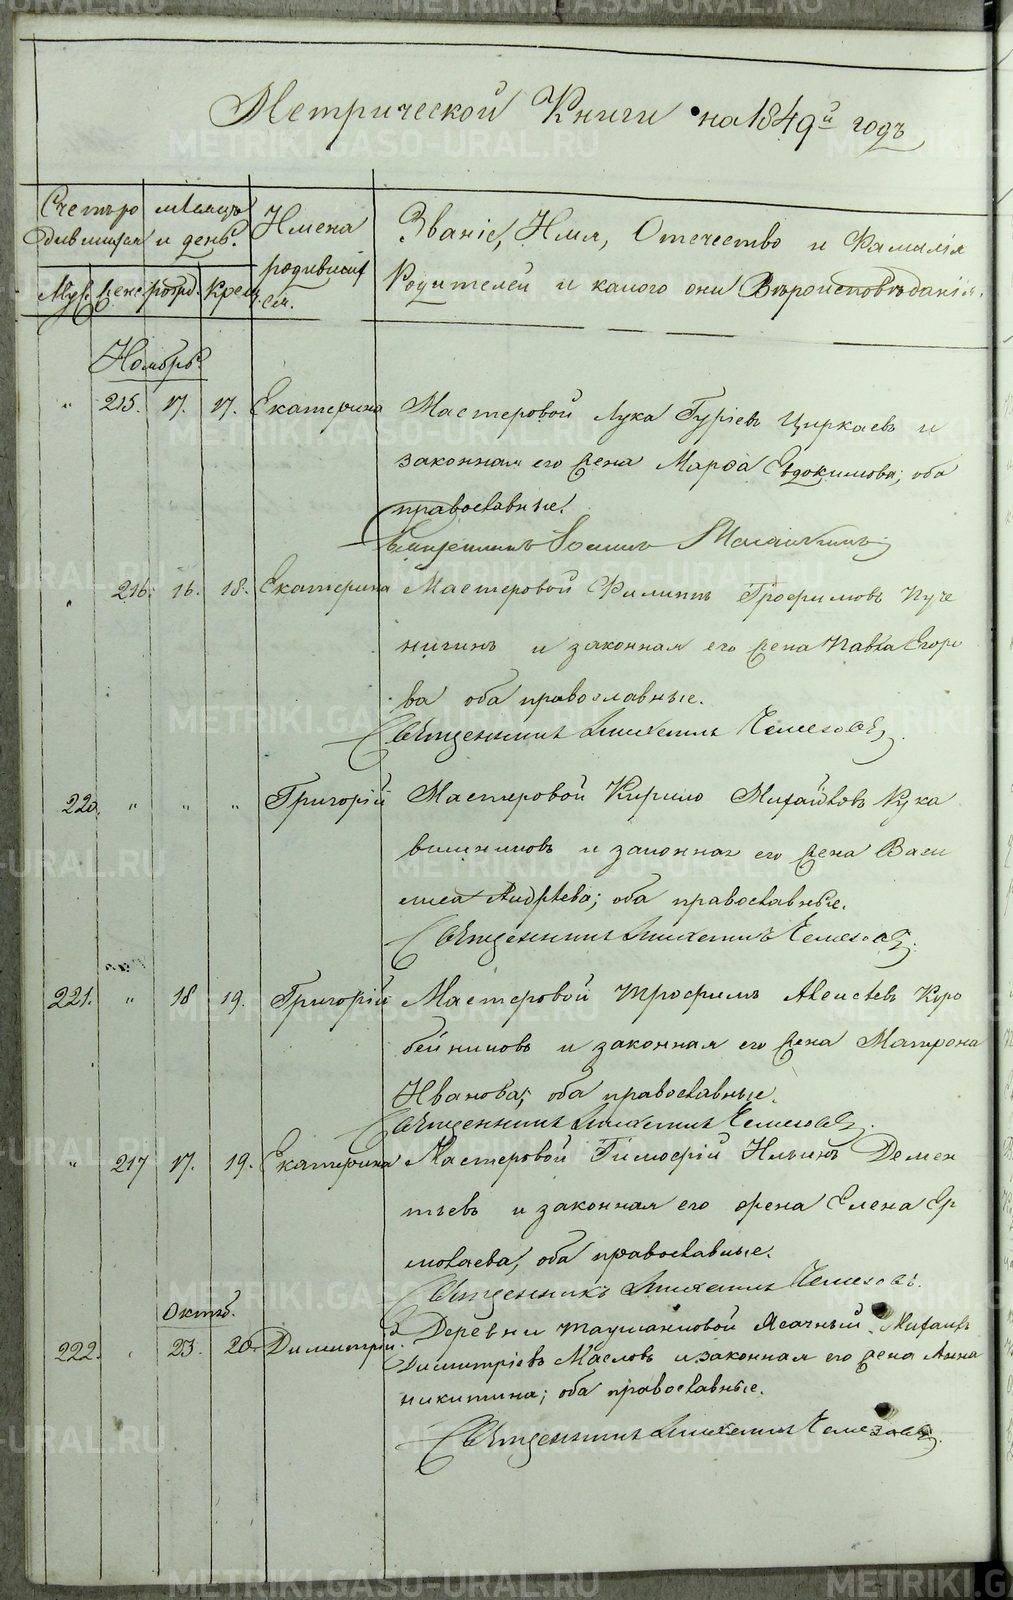 Метрической Книги на 1849й годъ
Счетъ ро мѣсяцъ Имена Званіе, Имя, Отечество и Фамилія
дившихся и день. родивших Родителей и какого они Вѣроисповѣданія.
Муж. Жене. рожд. Крещ. ся.
Ноябрь
" 215. 17. 17. Екатерина Мастеровой Лука Гуріевъ Циркаевъ и
законная его жена Марфа Евдокимова; оба
православные.
Священникъ Іоаннъ
" 216. 16. 18. Екатерина Мастеровой Филиппъ Трофимовъ Пуче
нигинъ и законная его жена Павла Егоро
ва оба православные.
Священникъ Чемезовъ
220. " " " Григорій Мастеровой Кирило Михайловъ Кука
вишниковъ и законная его жена Васи
лиса Андрѣева; оба православные.
Священникъ Чемезовъ.
221. " 18 19. Григорій Мастеровой Трофимъ Алексѣевъ Коро
бейниковъ и законная его жена Матрона
Иванова; оба православные.
Священникъ Чемезовъ.
" 217 17. 19. Екатерина Мастеровой Тимофій Ильинъ Демен
тьевъ и законная его жена Елена Ер
молаева, оба православные.
Священникъ Чемезовъ.
Октяб.
222. " 23. 20. Димитрій Деревни Ясачный Михаилъ
Димитріевъ Масловъ и законная его жена Анна
Никитина; оба православные.
Священникъ Чемезовъ.
METRIKI.GASO-URAL.RU